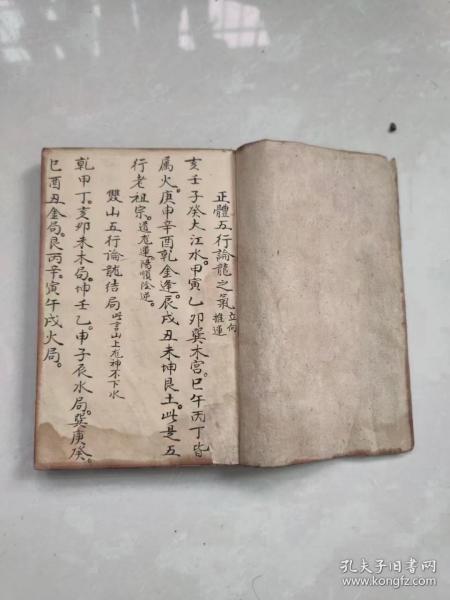 正體五行論龍之氣立向推運
亥壬子癸大江水。甲寅乙卯巽木宮。巳午丙丁皆
属火。庚申辛酉乾金逢。辰戌丑未坤艮土。此是五
行老祖宗。遁龙運。陽順陰逆。
雙山五行論龍結局此言山上龙神不下水
乾甲丁。亥卯未木局。坤壬乙。申子辰水局。巽庚癸。
巳酉丑金局。艮丙辛。寅午戌火局。
孔夫子旧书网
www.kongfz.com